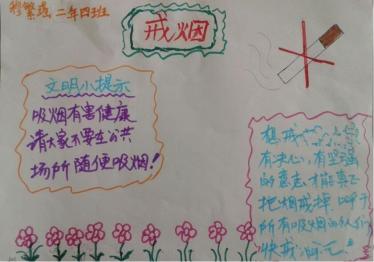 穆繁瑶 二年四班
戒烟
文明小提示
吸烟有害健康
请大家不要在公共
场所随便吸烟!
想戒
有决心,有坚强
的意志,才能真正
把烟戒掉,呼于
所有吸烟的人们
快戒烟吧!